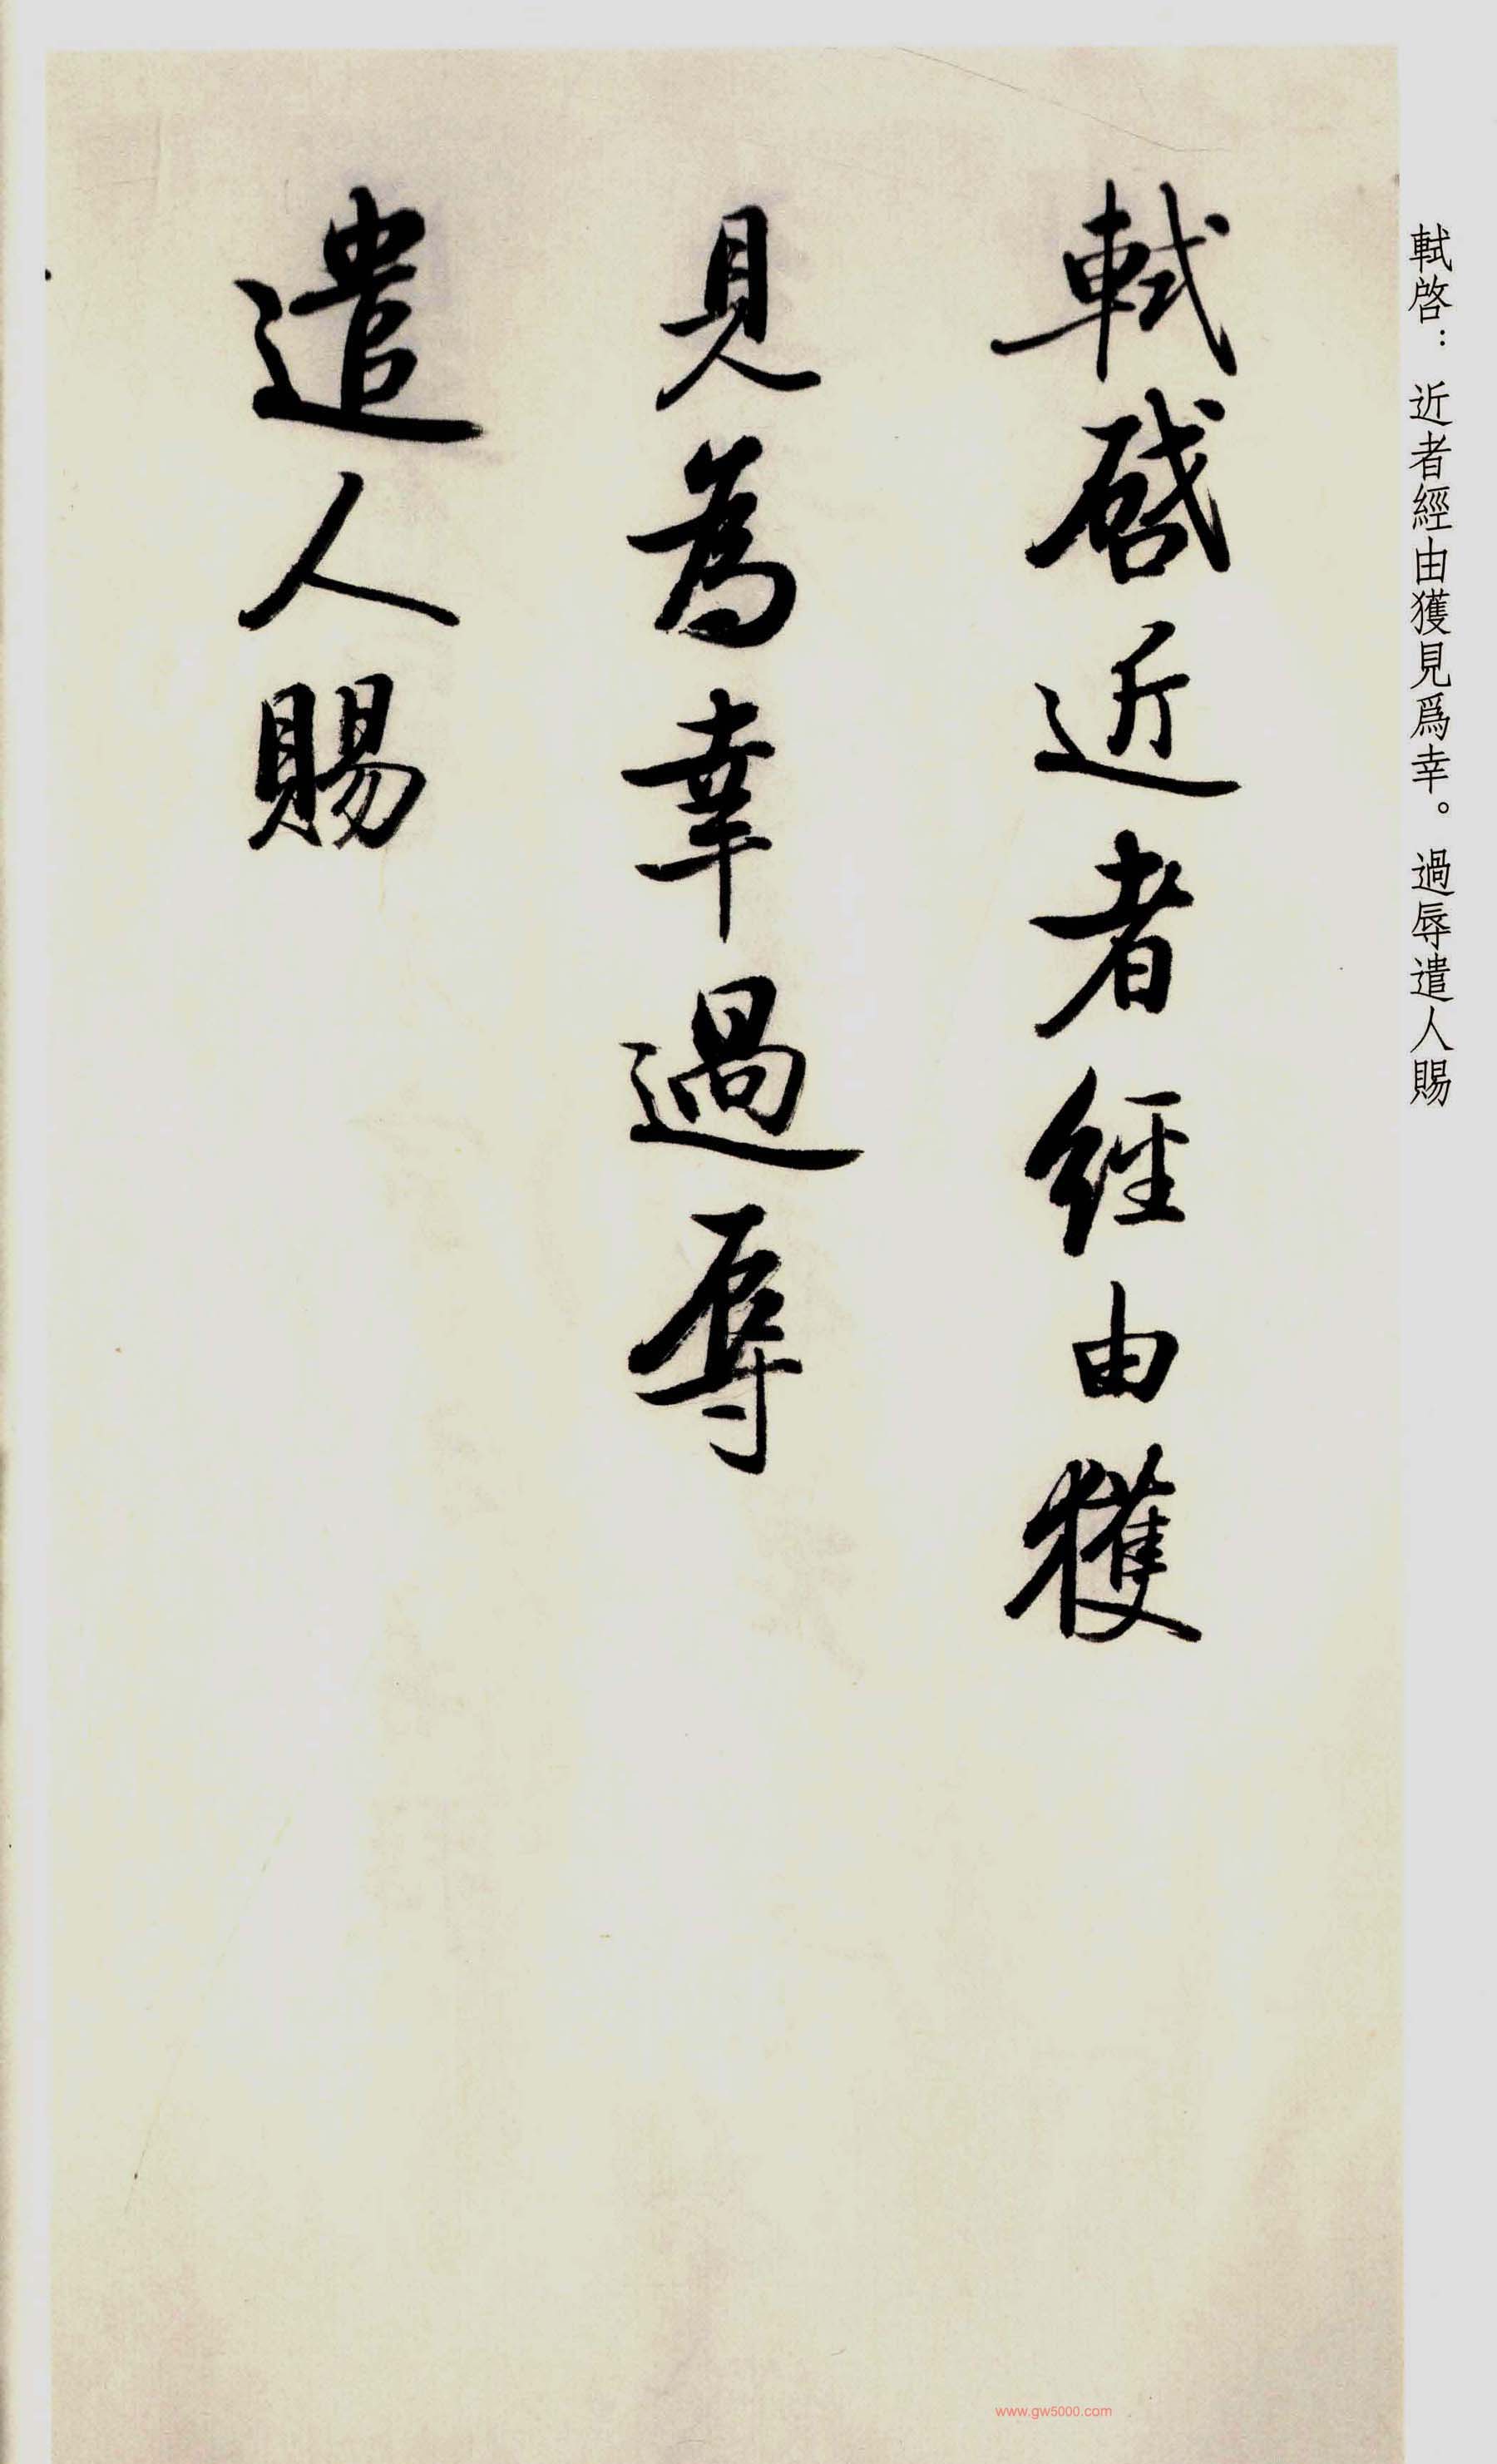 軾啓：近者經由獲見爲幸。過辱遣人賜
軾啓近者經由獲
見為幸過辱
遣人賜
www.gw5000.com